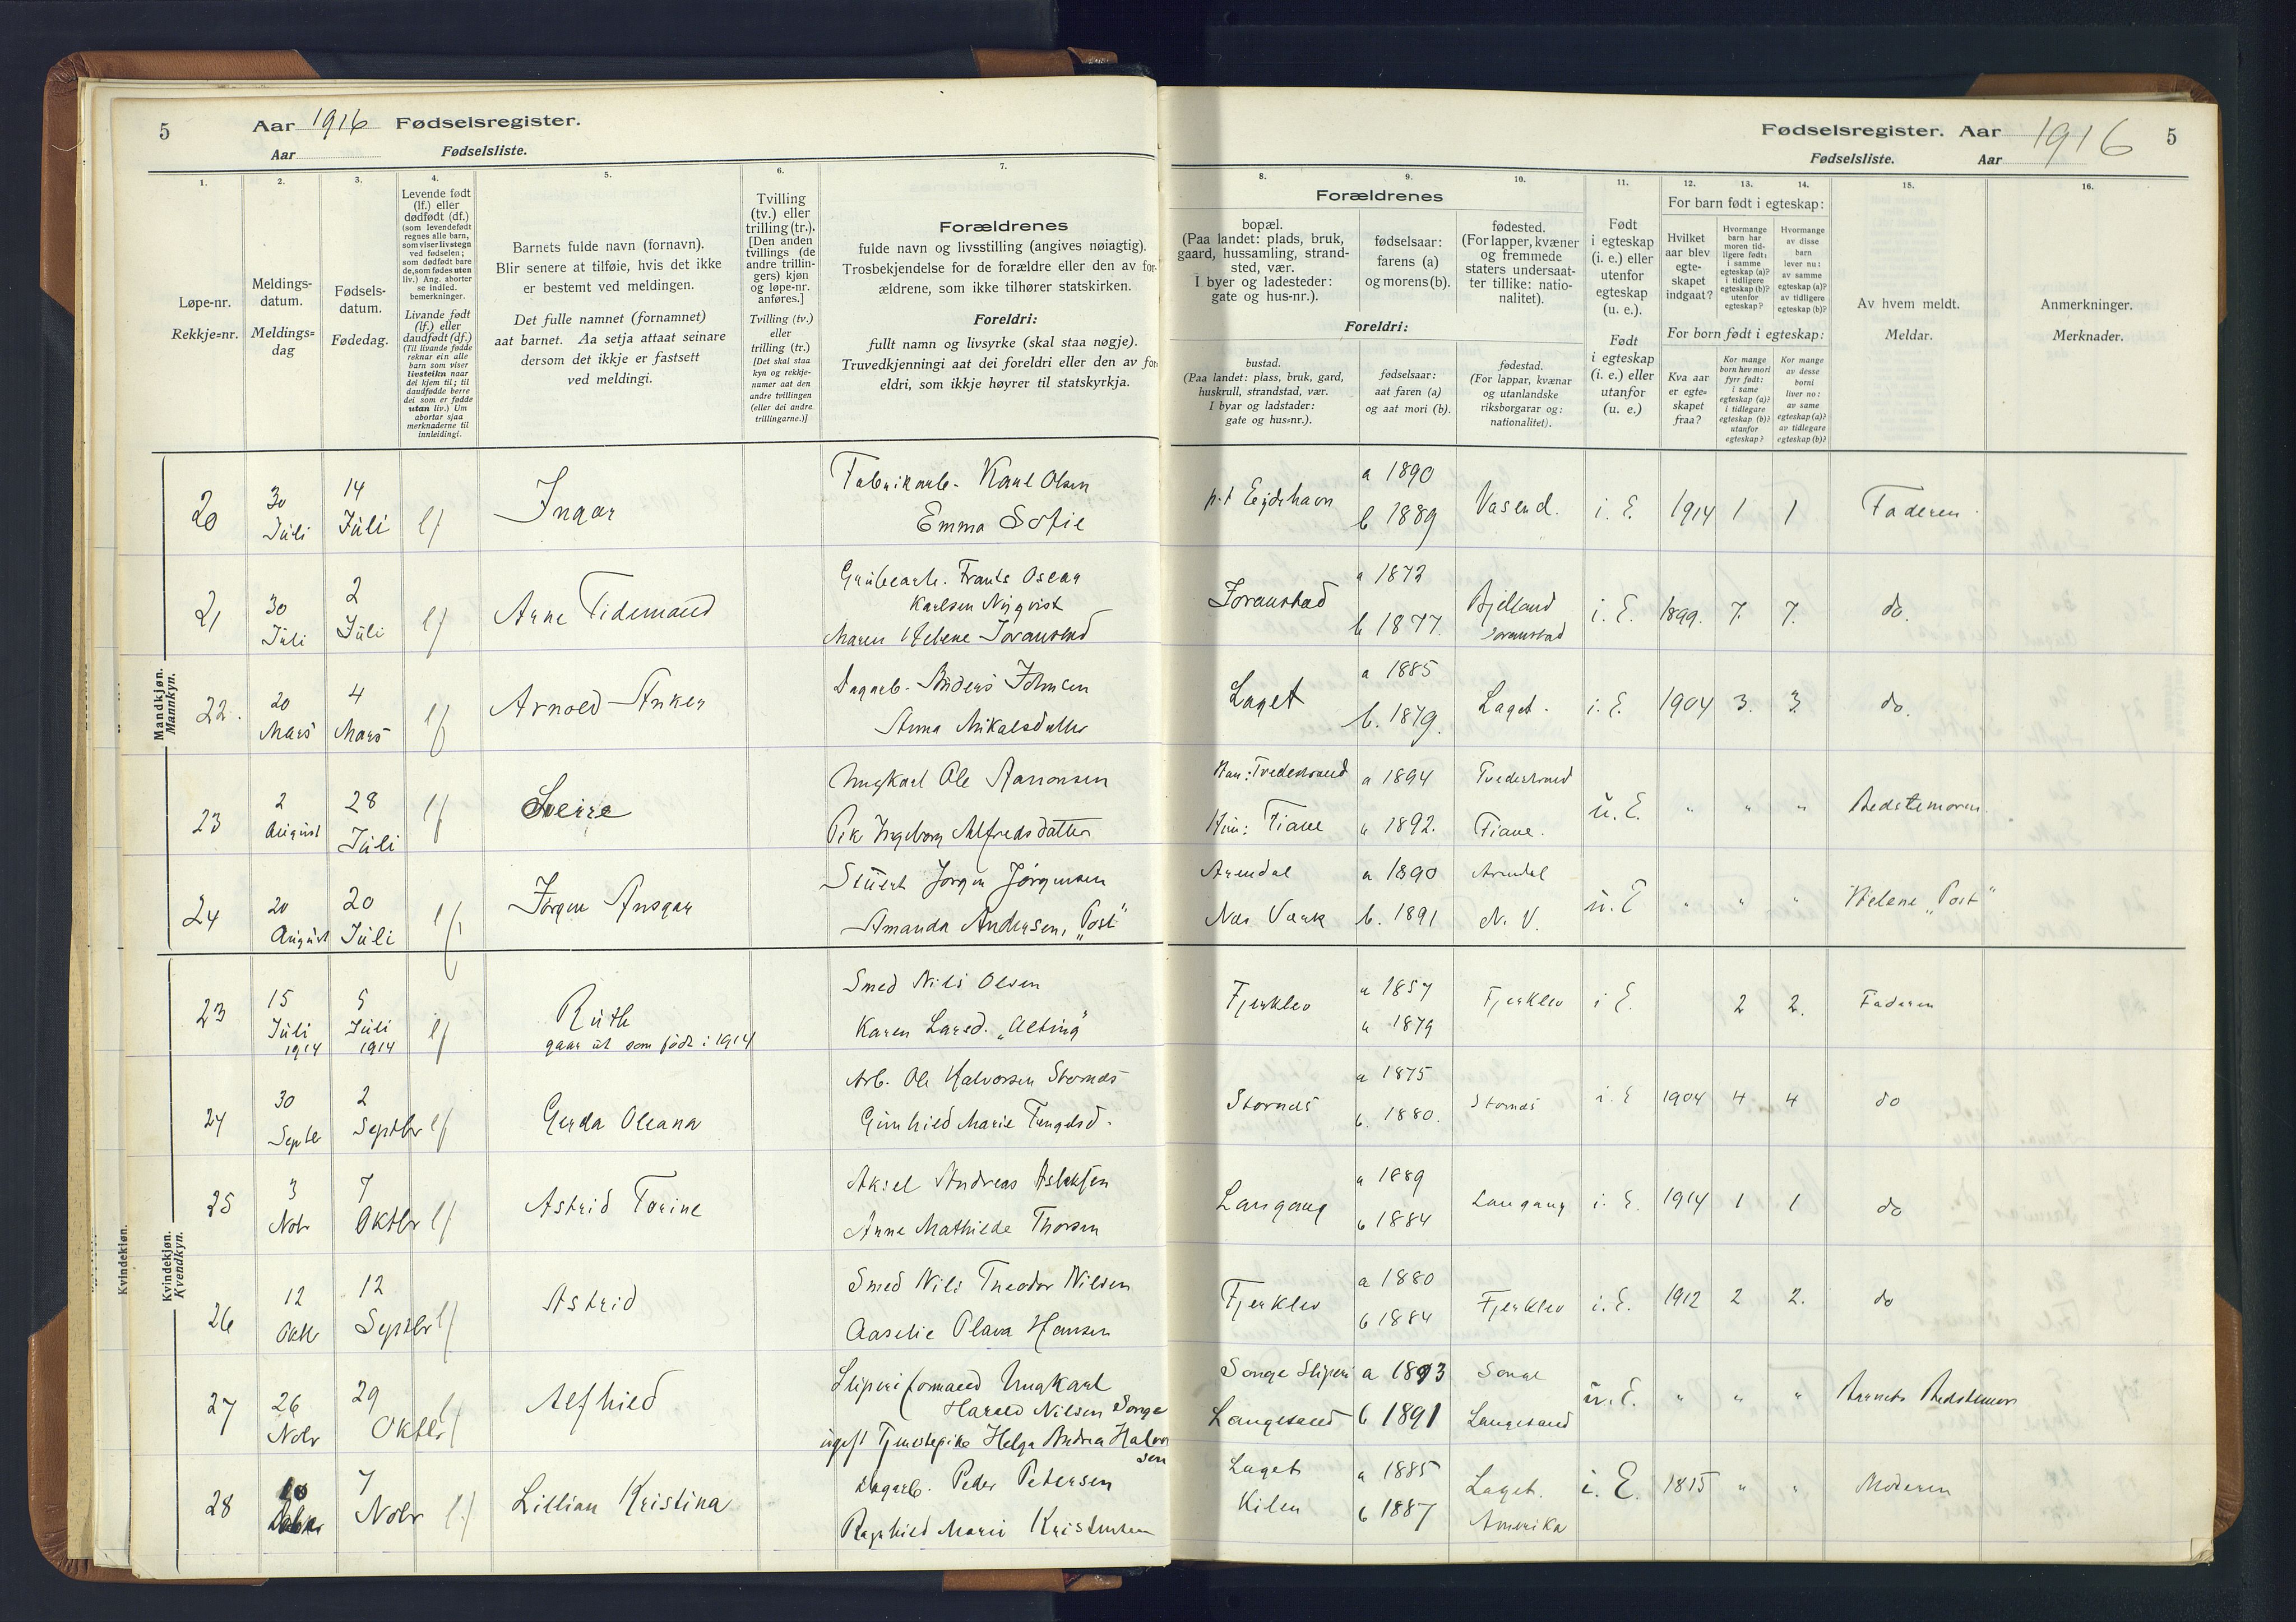 5
Aar 1916 Fødselsregister.
Aar
Fødselsliste.
1.
2.
3.
4.
5.
6.
7.
Løpe-nr.
Rekkje=nr.
Meldings-
datum.
Meldings=
dag
Fødsels-
datum.
Fødedag.
Levende født
(lf.) eller
dødfødt (df.)
(som levendefødt
regnes alle barn,
som viser livstegn
ved fødselen;
som dødfødt bare
de, som fødes uten
liv.) Ang. aborter
se indled.
bemerkninger.
Livande født
(lf.) eller
daudfødt (df.)
(Til livande fødde
reknar ein alle
barn som viser
livsteikn naar
dei kjem til; til
daudfødde berre
dei som er fødde
utan liv.) Um
abortar sjaa
merknaderne til
innleidingi.
Barnets fulde navn (fornavn).
Blir senere at tilføie, hvis det ikke
er bestemt ved meldingen.
Det fulle namnet (fornamnet)
aat barnet. Aa setja attaat seinare
dersom det ikkje er fastsett
ved meldingi.
Tvilling
(tv.) eller
trilling (tr.).
[Den anden
tvillings (de
andre trillin-
gers) kjøn
og løpe-nr.
anføres.]
Tvilling (tv.)
eller
trilling (tr.)
[Det skal staa
kyn og rekkje-
numer aat den
andre tvillingen
(eller dei andre
trillingarne.)]
Forældrenes
fulde navn og livsstilling (angives nøiagtig).
Trosbekjendelse for de forældre eller den av for-
ældrene, som ikke tilhører statskirken.
Foreldri:
fullt namn og livsyrke (skal staa nøgje).
Truvedkjenningi aat dei foreldri eller den av for
eldri, som ikkje høyrer til statskyrkja.
Mandkjøn.
Mannkyn.
20
30
Juli
14
Juli
lf
Ingar
Fabrikarb. Karl Olsen
Emma Sofie
21
30
Juli
2
Juli
lf
Arne Tidemand
Grubearb. Frants Oscar
Karlsen Nyqvist
Maren Helene Joranstad
22.
20
Mars
4
Mars
lf
Arnold Anker
Dagarb. Anders Johnsen
Anna Mikalsdatter
23
2
August
28
Juli
lf
Sverre
Ungkarl Ole Aanonsen
Pik Ingeborg Alfredsdatter
24
20
August
20
Juli
lf
Jørgen Ansgar
Stuert Jørgen Jørgensen
Amanda Andersen, "Post"
Kvindekjøn.
Kvindekjøn.
Kvendkyn.
23
15
Juli
1914
5
Juli
1914
lf
Ruth
gaar ut som født i 1914
Smed Nils Olsen
Karen Larsd. "Alting"
24
30
Septbr
2
Septbr
lf
Gerda Oleana
Arb. Ole Halvorsen Stornes
Gunhild Marie Tengelsd.
25
3
Nobr
7
Oktbr
lf
Astrid Torine
Aksel Andreas Aslaksen
Anne Mathilde Thorsen
26
12
Oktb
12
Septbr
lf
Astrid
Smed Nils Theodor Nilsen
Aaselie Olava Hansen
27
26
Nobr
29
Oktbr
lf
Alfhild
Sliperiformand Ungkarl
Harald Nilsen Songe
ugift Tjenestepike Helga Andrea Halvor
sen
28
10
7
Nobr
lf
Lillian Kristina
Dagarb. Peder Petersen
Ragnhild Marie Kristensen
Fødselsregister. Aar 1916
5
Fødselsliste.
Aar
8.
9.
10.
11.
12.
13.
14.
15.
16.
Forældrenes
bopæl.
(Paa landet: plads, bruk,
gaard, hussamling, strand-
sted, vær.
I byer og ladesteder:
gate og hus-nr.).
fødselsaar:
farens (a)
og morens (b).
fødested.
(For lapper, kvæner
og fremmede
staters undersaat-
ter tillike: natio-
nalitet).
Foreldri:
bustad.
(Paa landet: plass, bruk, gard,
huskrull, strandstad, vær.
I byar og ladstader:
gate og hus=nr.).
fødselsaar:
aat faren (a)
og aat mori (b).
fødestad.
(For lappar, kvænar
og utanlandske
riksborgarar og:
nationalitet).
Født
i egteskap
(i. e.) eller
utenfor
egteskap
(u. e.).
Født
i egteskap
(i. e.) eller
utanfor
(u. e.)
For barn født i egteskap:
Hvilket
aar blev
egte-
skapet
indgaat?
Hvormange
barn har
moren tid-
ligere født:
i samme
egteskap (a)?
i tidligere
egteskap (b)?
utenfor
egteskap?
Hvormange
av disse
barn
lever nu:
av samme
egteskap (a)?
av tidligere
egteskap (b)?
For born født i egteskap:
Kva aar
er egte-
skapet
fraa?
Kor mange
born hev mori
fyrr født:
i same
egteskap (a)?
i tidlegare
egteskap (b)?
utanfor
egteskap?
Kor mange
av desse
borni
liver no:
av same
egteskap (a)?
av tidlegare
egteskap (b)?
Av hvem meldt.
Meldar.
Anmerkninger.
Merknader.
p.t Eydehavn
a 1890
b 1889
Vasend.
i. E.
1914
1
1
Faderen
Joranstad
a 1872
b 1877.
Bjelland
Joranstad
i. E.
1899.
7.
7.
do.
Laget
a 1885
b. 1879.
Laget.
i. E.
1904
3.
3.
do.
Han: Tvedestrand
a 1894
Tvedestrand
Hun: Fiane
" 1892.
Fiane.
u. E.
"
"
"
Bedstemoren.
Arendal
a 1890
Arendal
Næs Værk
b. 1891
N. V.
u. E
"
"
"
Helene "Post"
Fjerklev
a 1857
" 1879
Fjerklev
i E.
2
2.
Faderen
Stornes
a 1875
b 1880.
Stornes
i. E
1904
4
4
do
Langang
a 1889
b 1884
Langang
i. E.
1914
1
1
do
Fjerklev
a 1880
b 1884
Fjerklev
i. E.
1912
2
2.
do
Songe Sliperi
a 1893
Songe
Langesand
b 1891
Langesand
u. E.
"
"
"
Barnets Bedstemor
Laget
a 1885
Laget.
Kilen
b 1887
Amerika
i. E.
1815
"
"
Moderen